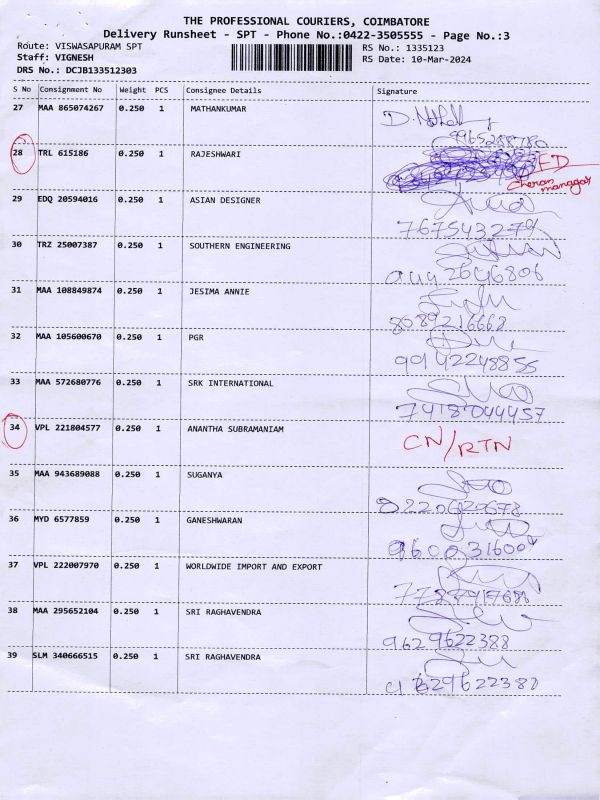 THE PROFESSIONAL COURIERS, COIMBATORE
Delivery Runsheet - SPT - Phone No.:0422-3505555 - Page No.:3
Route: VISWASAPURAM SPT RS No.: 1335123
Staff: VIGNESH RS Date: 10-Mar-2024
DRS No.: DCJB133512303
S No Consignment No Weight PCS Consignee Details Signature
27 MAA 865074267 0.250 1 MATHANKUMAR
9965288780
28 TRL 615186 0.250 1 RAJESHWARI
29 EDQ 20594016 0.250 1 ASIAN DESIGNER
7675432794
30 TRZ 25007387 0.250 1 SOUTHERN ENGINEERING
9442646806
31 MAA 108849874 0.250 1 JESIMA ANNIE
8089216668
32 MAA 105600670 0.250 1 PGR
9942248855
33 MAA 572680776 0.250 1 SRK INTERNATIONAL
7418044457
34 VPL 221804577 0.250 1 ANANTHA SUBRAMANIAM CN/RTN
35 MAA 943689088 0.250 1 SUGANYA
36 MYD 6577859 0.250 1 GANESHWARAN
37 VPL 222007970 0.250 1 WORLDWIDE IMPORT AND EXPORT
38 MAA 295652104 0.250 1 SRI RAGHAVENDRA
9629622388
39 SLM 340666515 0.250 1 SRI RAGHAVENDRA